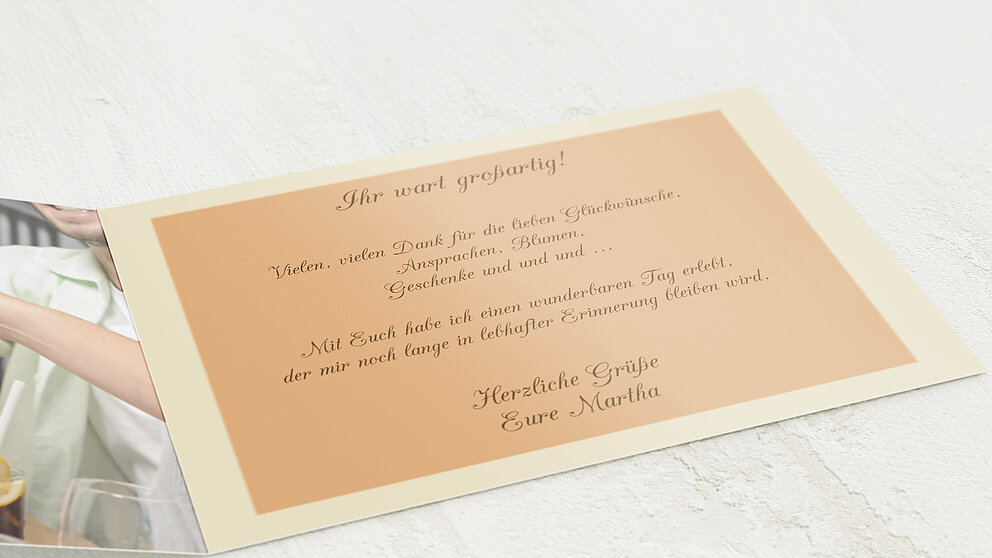 Ihr wart großartig!
Vielen, vielen Dank für die lieben Glückwünsche,
Ansprachen, Blumen,
Geschenke und und und ...
Mit Euch habe ich einen wunderbaren Tag erlebt,
der mir noch lange in lebhafter Erinnerung bleiben wird.
Herzliche Grüße
Eure Martha